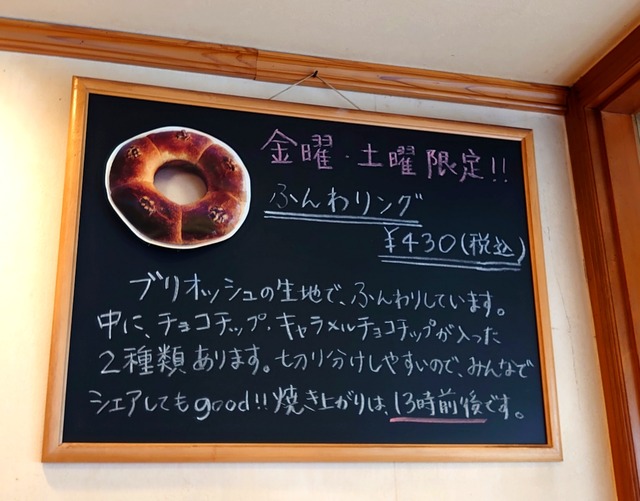 金曜・土曜限定!!
ふんわリング
¥430(税込)
ブリオッシュの生地で、ふんわりしています。
中に、チョコチップ・キャラメルチョコチップが入った
2種類あります。切り分けしやすいので、みんなで
シェアしてもgood!!焼き上がりは、13時前後です。